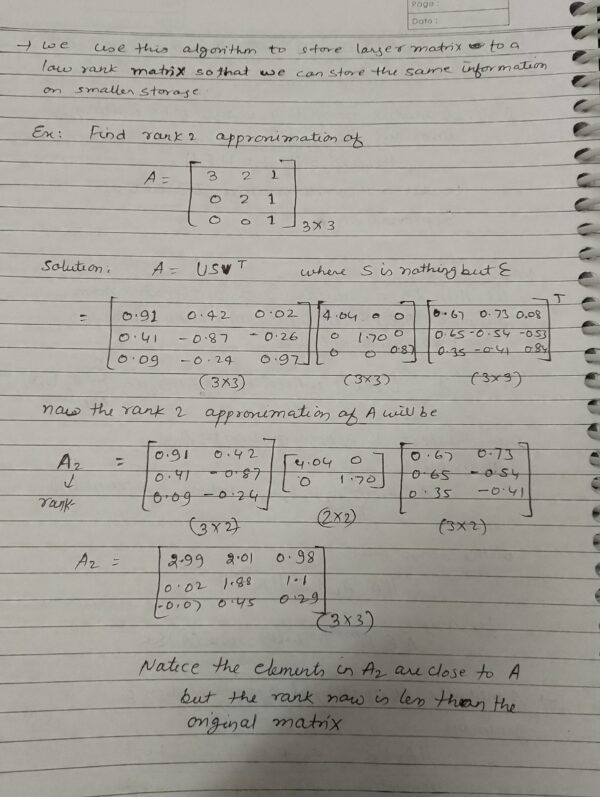 Page:
Date:
→ We use this algorithm to store larger matrix to a
low rank matrix so that we can store the same information
on smaller storage
Ex: Find rank 2 approximation of
A = [3 2 1
0 2 1
0 0 1] 3×3
Solution: A = USV^T where S is nothing but Σ
= [0.91 0.42 0.02] [4.04 0 0] [0.67 0.73 0.08]^T
[0.41 -0.87 -0.26] [0 1.70 0] [0.65 -0.54 -0.53]
[0.09 -0.24 0.97] [0 0 0.87] [0.35 -0.41 0.84]
(3×3) (3×3) (3×3)
now the rank 2 approximation of A will be
A2 = [0.91 0.42] [4.04 0] [0.67 0.73]
↓ [0.41 -0.87] [0 1.70] [0.65 -0.54]
rank [0.09 -0.24] [0.35 -0.41]
(3×2) (2×2) (3×2)
A2 = [2.99 2.01 0.98
0.02 1.88 1.1
-0.07 0.45 0.29] (3×3)
Notice the elements in A2 are close to A
but the rank now is less than the
original matrix